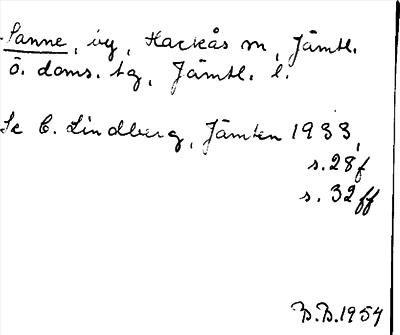 Sanne, by, Hackås sn, Jämtl.
ö. doms. tg, Jämtl. l.
Se C. Lindberg, Jämten 1933,
s. 28f
s. 32ff
B.B. 1954